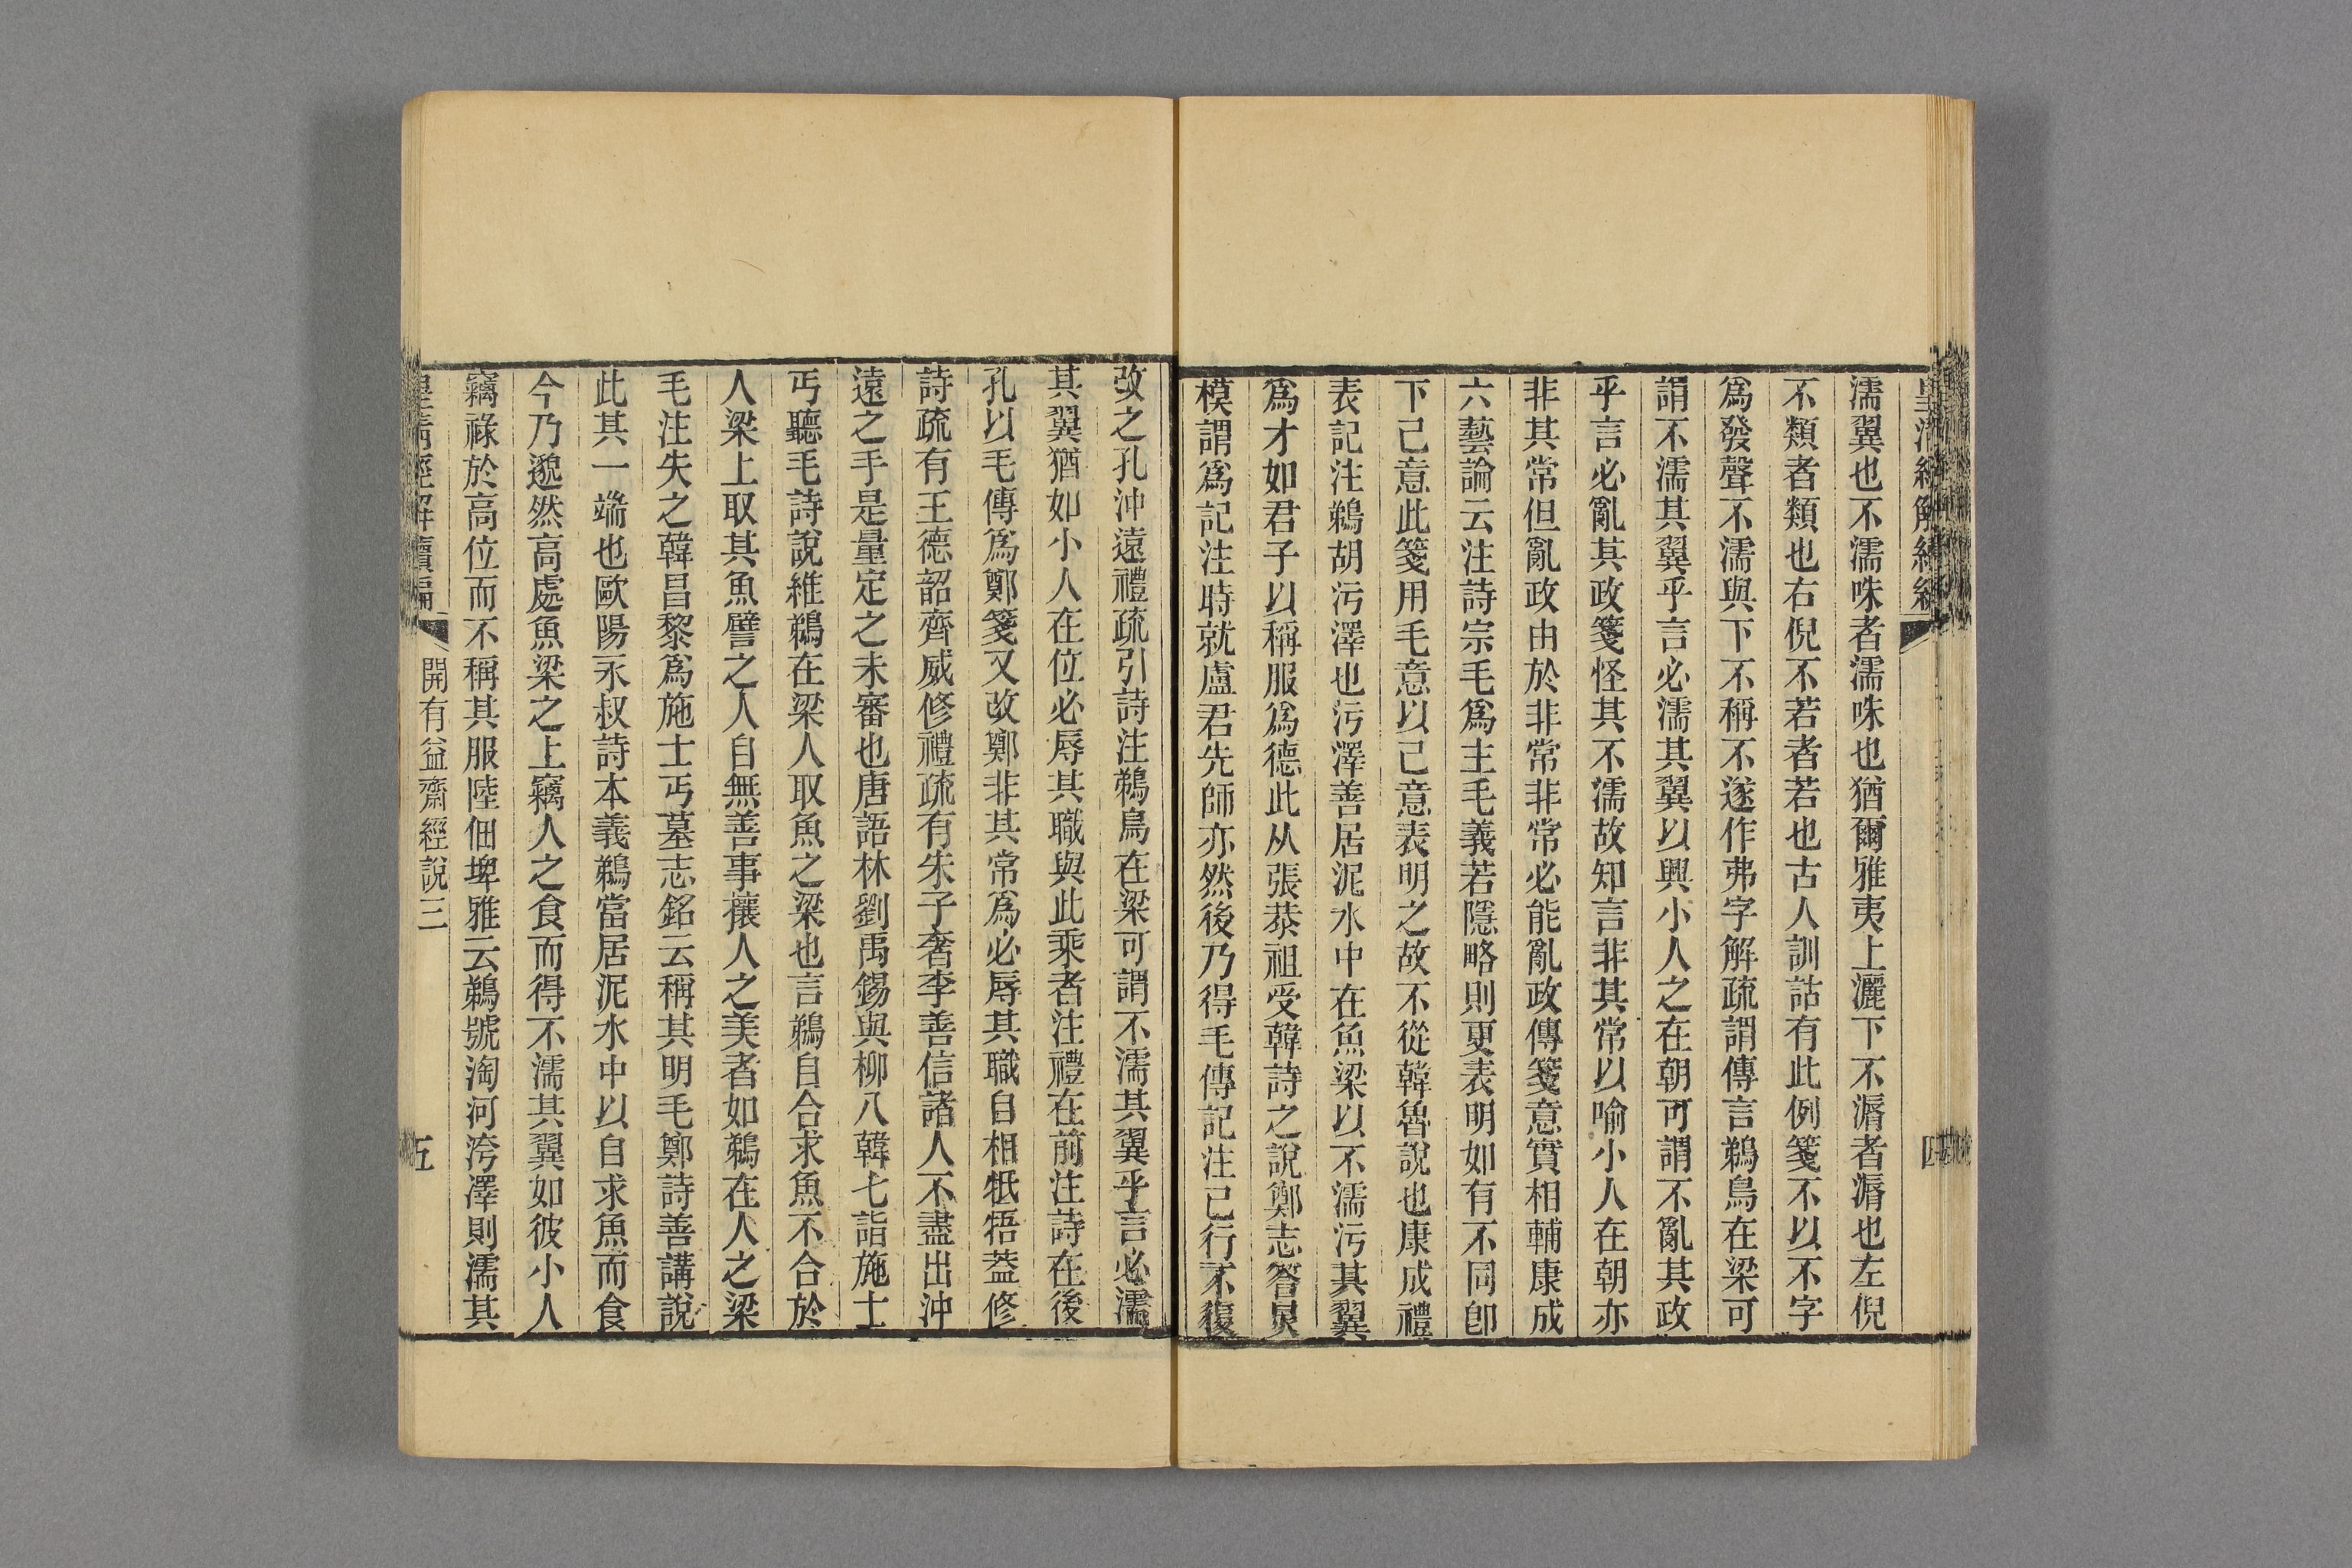 濡翼也不濡咮者濡咮也猶爾雅夷上灑下不漘者漘也左倪
不類者類也右倪不若者若也古人訓詁有此例箋不以不字
爲發聲不濡與下不稱不遂作弗字解疏謂傳言鵜鳥在梁可
謂不濡其翼乎言必濡其翼以興小人之在朝可謂不亂其政
乎言必亂其政箋怪其不濡故知言非其常以喻小人在朝亦
非其常但亂政由於非常非常必能亂政傳箋意實相輔康成
六藝論云注詩宗毛爲主毛義若隱略則更表明如有不同卽
下己意此箋用毛意以己意表明之故不從韓魯說也康成禮
表記注鵜胡污澤也污澤善居泥水中在魚梁以不濡污其翼
爲才如君子以稱服爲德此从張恭祖受韓詩之說鄭志答炅
模謂爲記注時就盧君先師亦然後乃得毛傳記注已行不復
改之孔沖遠禮疏引詩注鵜鳥在梁可謂不濡其翼乎言必濡
其翼猶如小人在位必辱其職與此乘者注禮在前注詩在後
孔以毛傳爲鄭箋又改鄭非其常爲必辱其職自相牴牾葢修
詩疏有王德韶齊威修禮疏有朱子奢李善信諸人不盡出沖
遠之手是量定之未審也唐語林劉禹錫與柳八韓七詣施士
丐聽毛詩說維鵜在梁人取魚之梁也言鵜自合求魚不合於
人梁上取其魚譬之人自無善事攘人之美者如鵜在人之梁
毛注失之韓昌黎爲施士丐墓志銘云稱其明毛鄭詩善講說
此其一端也歐陽永叔詩本義鵜當居泥水中以自求魚而食
今乃邈然高處魚梁之上竊人之食而得不濡其翼如彼小人
竊祿於高位而不稱其服陸佃埤雅云鵜號淘河洿澤則濡其
皇清經解續編
開有益齋經說三
五